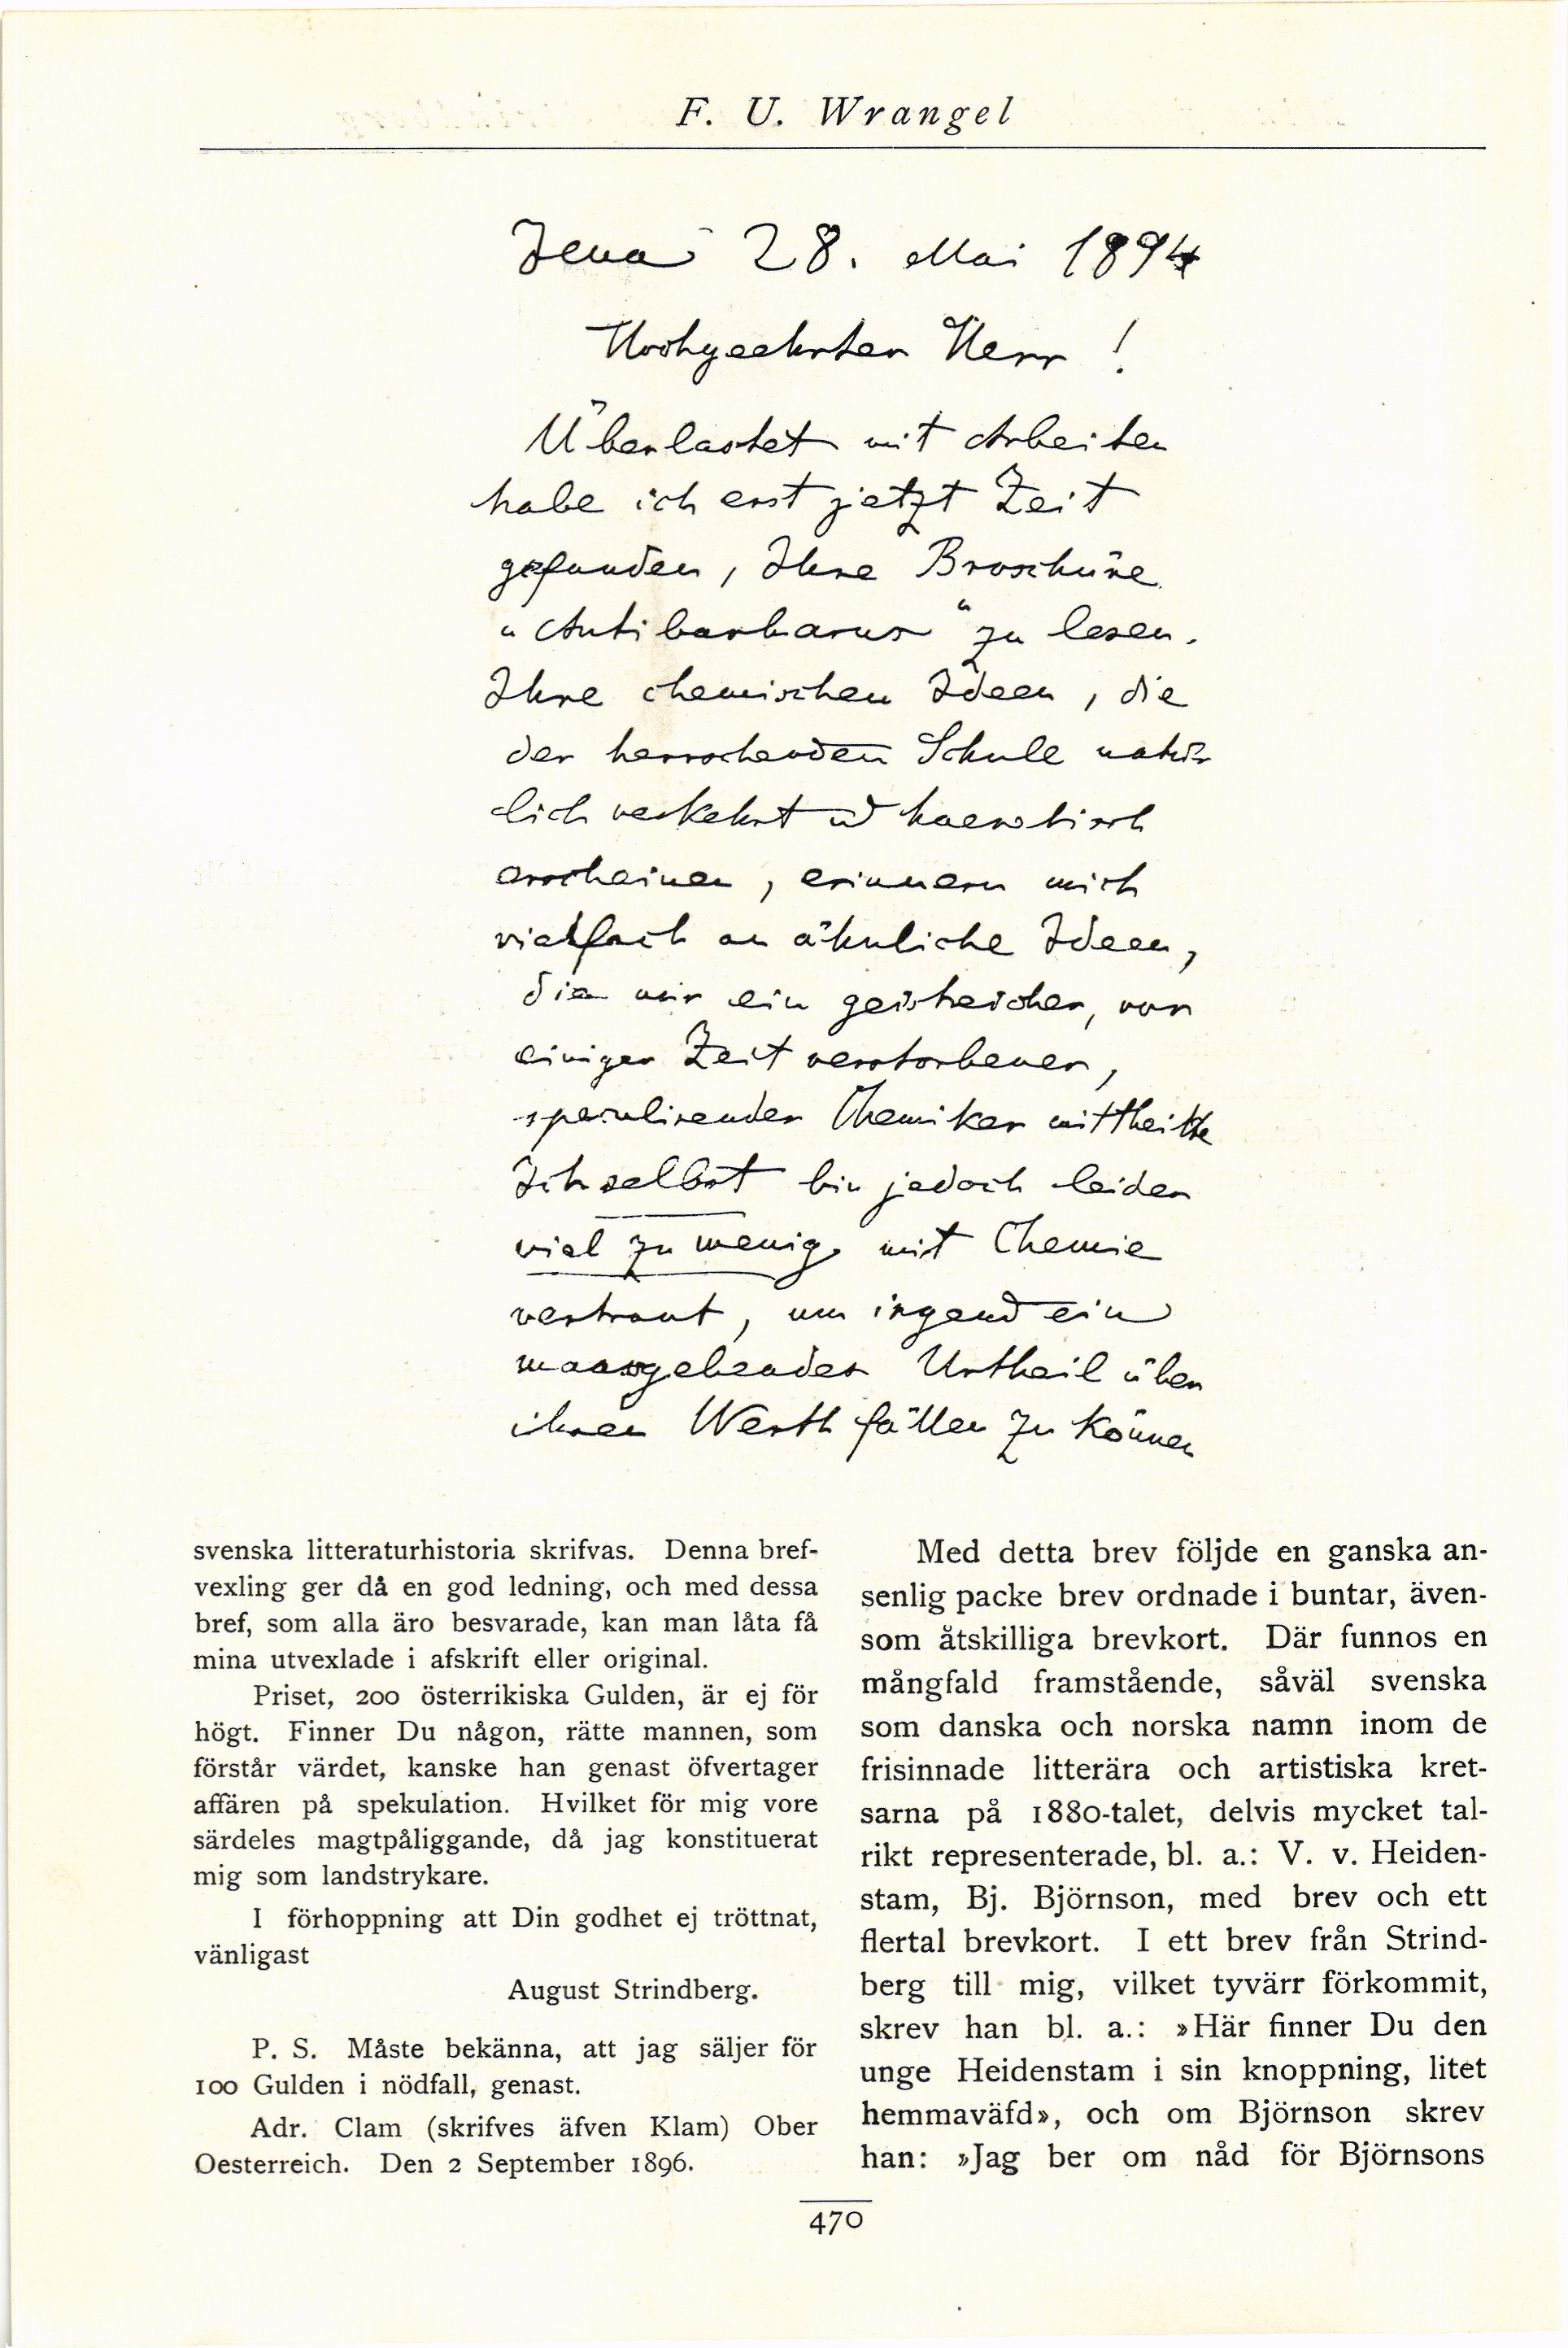 F. U. Wrangel
Jena 28. Mai 1894
Hochgeehrter Herr !
Überlastet mit Arbeiten
habe ich erst jetzt Zeit
gefunden, Ihre Broschüre
„Antibarbarus“ zu lesen.
Ihre chemischen Ideen, die
der herrschenden Schule natür
lich verkehrt u haeretisch
erscheinen, erinnern mich
vielfach an ähnliche Ideen,
die mir ein geistreicher, vor
einiger Zeit verstorbener,
speculirender Chemiker mittheilte
Ich selbst bin jedoch leider
viel zu wenig mit Chemie
vertraut, um irgend ein
maasgebendes Urtheil über
ihren Werth fällen zu können
svenska litteraturhistoria skrifvas. Denna bref-
vexling ger då en god ledning, och med dessa
bref, som alla äro besvarade, kan man låta få
mina utvexlade i afskrift eller original.
Priset, 200 österrikiska Gulden, är ej för
högt. Finner Du någon, rätte mannen, som
förstår värdet, kanske han genast öfvertager
affären på spekulation. Hvilket för mig vore
särdeles magtpåliggande, då jag konstituerat
mig som landstrykare.
I förhoppning att Din godhet ej tröttnat,
vänligast
August Strindberg.
P. S. Måste bekänna, att jag säljer för
100 Gulden i nödfall, genast.
Adr. Clam (skrifves äfven Klam) Ober
Oesterreich. Den 2 September 1896.
Med detta brev följde en ganska an-
senlig packe brev ordnade i buntar, även-
som åtskilliga brevkort. Där funnos en
mångfald framstående, såväl svenska
som danska och norska namn inom de
frisinnade litterära och artistiska kret-
sarna på 1880-talet, delvis mycket tal-
rikt representerade, bl. a.: V. v. Heiden-
stam, Bj. Björnson, med brev och ett
flertal brevkort. I ett brev från Strind-
berg till mig, vilket tyvärr förkommit,
skrev han bl. a.: »Här finner Du den
unge Heidenstam i sin knoppning, litet
hemmaväfd», och om Björnson skrev
han: »Jag ber om nåd för Björnsons
470